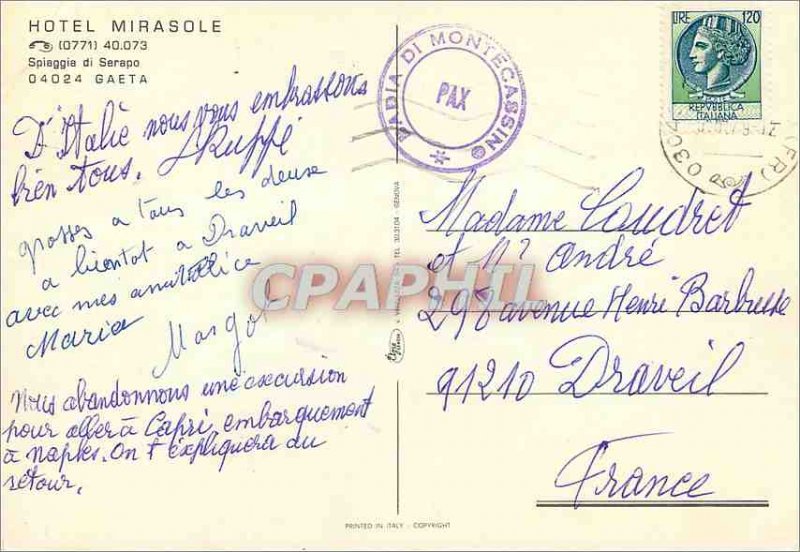 HOTEL MIRASOLE
(0771) 40.073
Spiaggia di Serapo
04024 GAETA
D'Italie nous vous embrassons
bien tous.
grosses a tous les deuse
a bientot a Draveil
avec mes
Maria Margot
Nous abandonnons une excursion
pour aller à Capri, embarquement
à naples. On t'expliquera au
retour.
BADIA DI MONTECASSINO
PAX
LIRE 120
REPVBBLICA
ITALIANA
Madame Coudret
et Mr André
298 avenue Henri Barbusse
91210 Draveil
France
CPAPHIL
PRINTED IN ITALY - COPYRIGHT